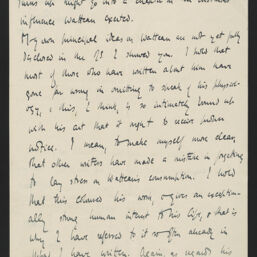 might go into a chapter on the
influence Watteau exerted.
My own principal ideas on Watteau are not yet fully
disclosed in the I showed you. I hold that
most of those who have written about him have
gone far wrong in omitting to speak of his physiol-
ogy, & this, I think, is so intimately bound up
with his art that it ought to receive
notice. I mean, to make myself more clear,
that other writers have made a mistake in forgetting
to lay stress on Watteau's consumption. I hold
that this coloured his work, & gives an exception-
ally strong human interest to his life, & that is
why I have referred to it so often already in
what I have written. Again as regards his